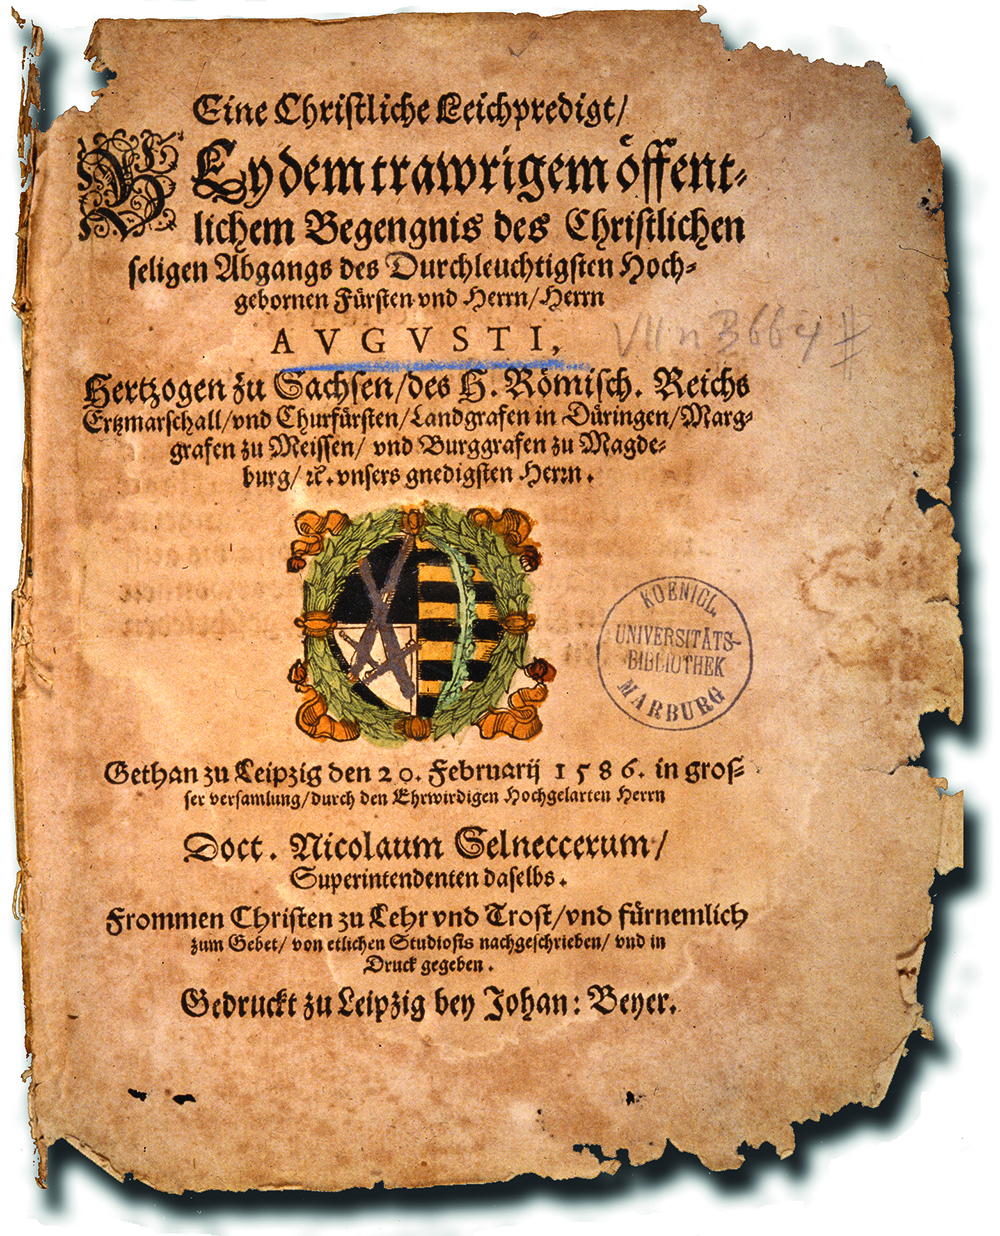 Eine Christliche Leichpredigt/
BEy dem trawrigem öffent-
lichem Begengnis des Christlichen
seligen Abgangs des Durchleuchtigsten Hoch-
gebornen Fürsten vnd Herrn/Herrn
AVGVSTI,
VII n B 664 #
Hertzogen zu Sachsen/des H. Römisch. Reichs
Ertzmarschall/vnd Churfürsten/Landgrafen in Düringen/Marg-
grafen zu Meissen/ vnd Burggrafen zu Magde-
burg/ ꝛc. vnsers gnedigsten Herrn.
KOENIGL.
UNIVERSITÄTS-
BIBLIOTHEK
MARBURG
Gethan zu Leipzig den 20. Februarij 1586. in gros-
ser versamlung/durch den Ehrwirdigen Hochgelarten Herrn
Doct. Nicolaum Selneccerum/
Superintendenten daselbs.
Frommen Christen zu Lehr vnd Trost/vnd fürnemlich
zum Gebet/ von etlichen Studiosis nachgeschrieben/ vnd in
Druck gegeben.
Gedruckt zu Leipzig bey Johan: Beyer.